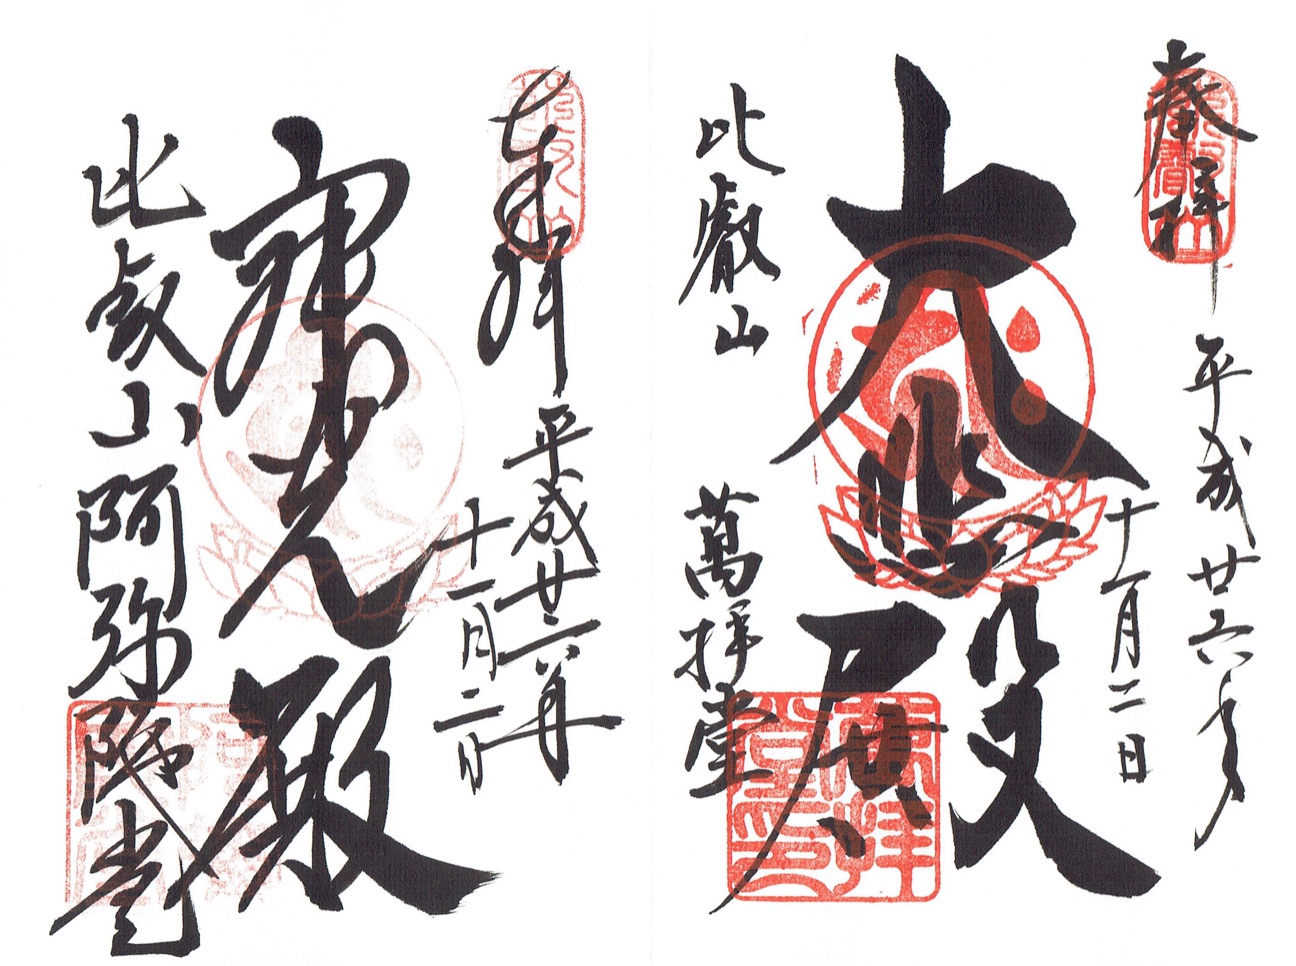 奉拝
平成廿六年
十一月二日
大悲殿
比叡山
萬拝堂
萬拝堂印
奉拝
平成廿六年
十一月二日
寂光殿
比叡山阿弥陀堂